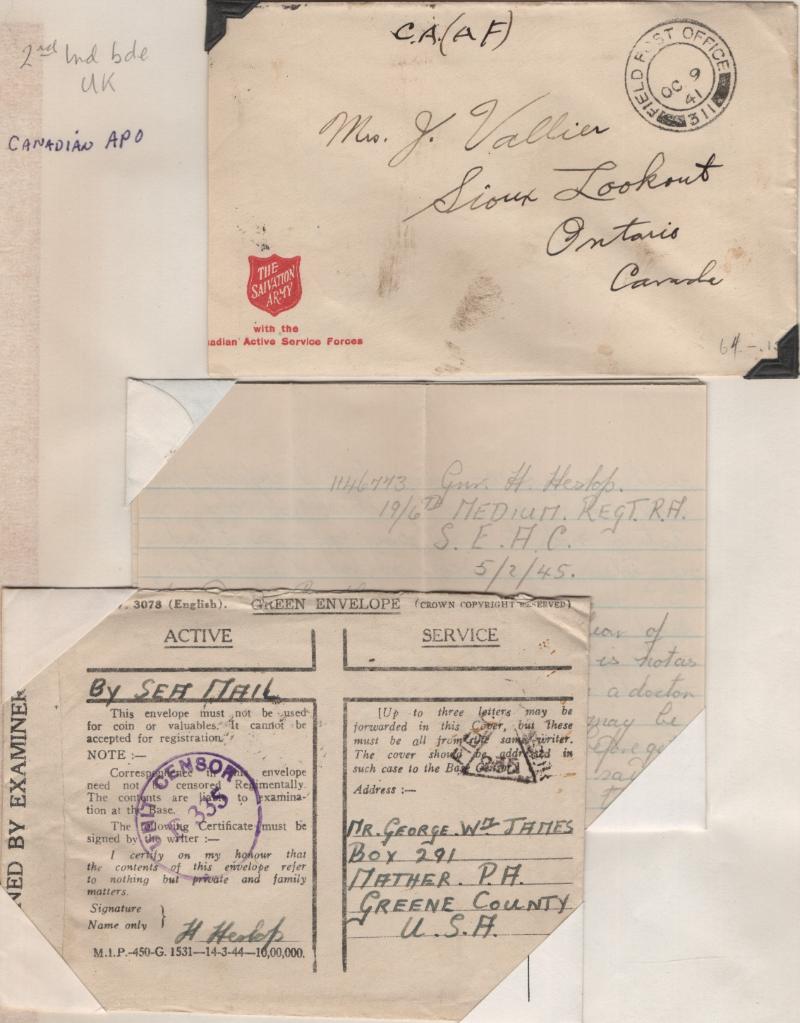 2nd Ind bde
UK
CANADIAN APO
C.A.(A F)
FIELD POST OFFICE
OC 9
41
311
Mrs. J. Vallier
Sioux Lookout
Ontario
Canada
THE
SALVATION
ARMY
with the
adian Active Service Forces
64
1146773 Gnr. H. Heslop.
19/6TH MEDIUM. REGT. R.A.
S. E. A. C.
5/2/45.
of
is not as
a doctor
may be
NED BY EXAMINER
3078 (English). GREEN ENVELOPE (CROWN COPYRIGHT RESERVED)
ACTIVE SERVICE
BY SEA MAIL
This envelope must not be used
for coin or valuables. It cannot be
accepted for registration.
NOTE :—
Correspondence in this envelope
need not be censored Regimentally.
The contents are liable to examina-
tion at the Base.
The following Certificate must be
signed by the writer :—
I certify on my honour that
the contents of this envelope refer
to nothing but private and family
matters.
Signature
Name only
H Heslop
M.I.P.-450-G. 1531—14-3-44—10,00,000.
UNIT CENSOR
335
[Up to three letters may be
forwarded in this Cover, but these
must be all from the same writer.
The cover should be addressed in
such case to the Base Censor.]
Address :—
MR. GEORGE. WM JAMES
BOX 291
MATHER. P.A.
GREENE COUNTY
U.S.A.